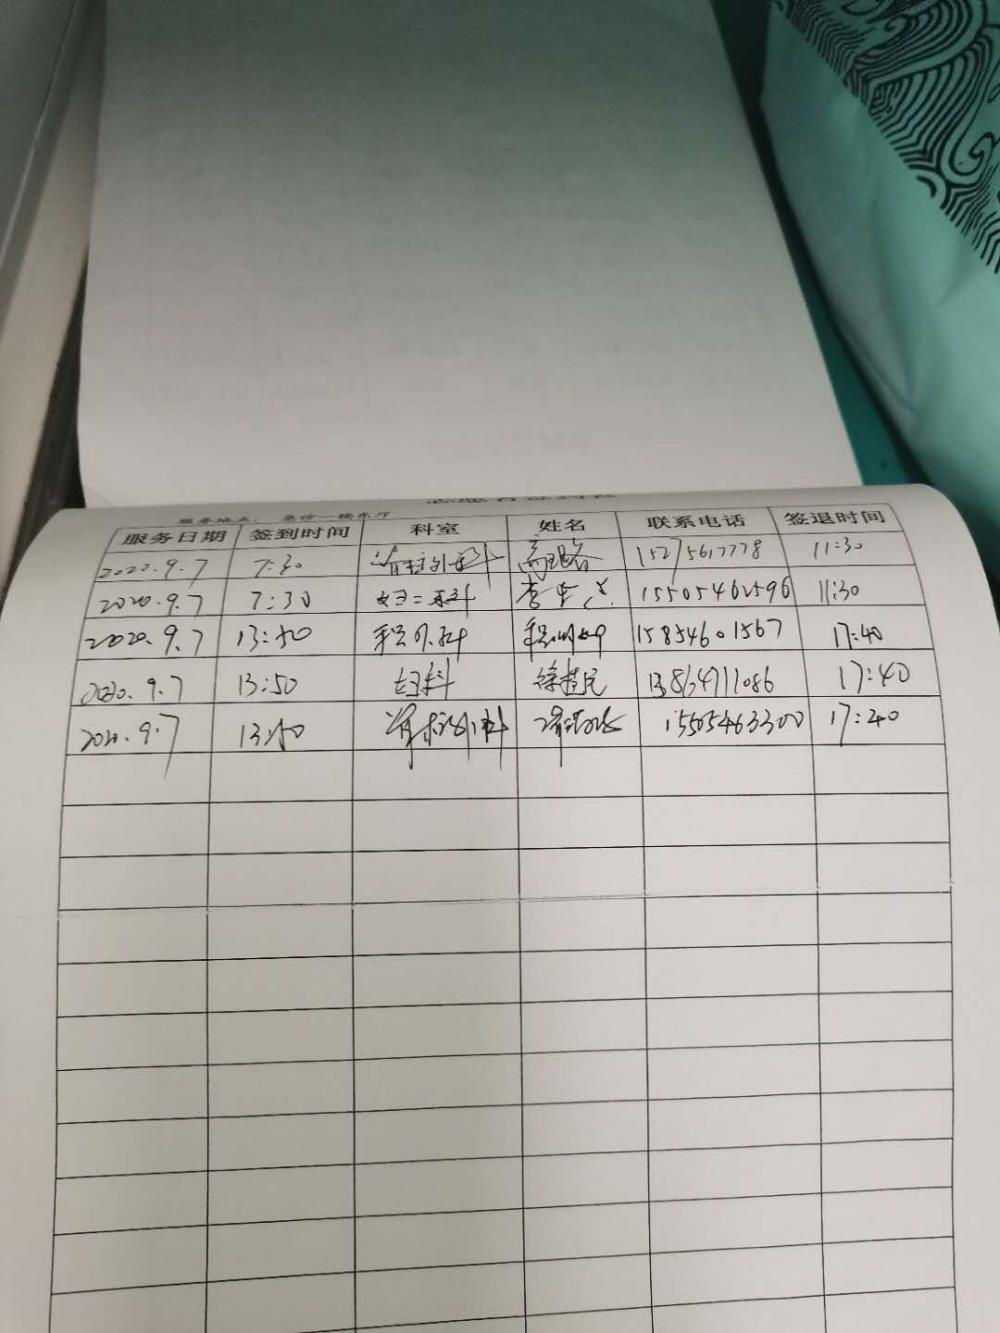 服务地点： 急诊一楼东厅
服务日期 签到时间 科室 姓名 联系电话 签退时间
2020.9.7 7:30 脊柱外科 高璐 15275617778 11:30
2020.9.7 7:30 妇二科 李 15505462596 11:30
2020.9.7 13:50 外科 15854601567 17:40
2020.9.7 13:50 妇科 徐桂民 13864711086 17:40
2020.9.7 13:50 脊柱外科 15505463300 17:40